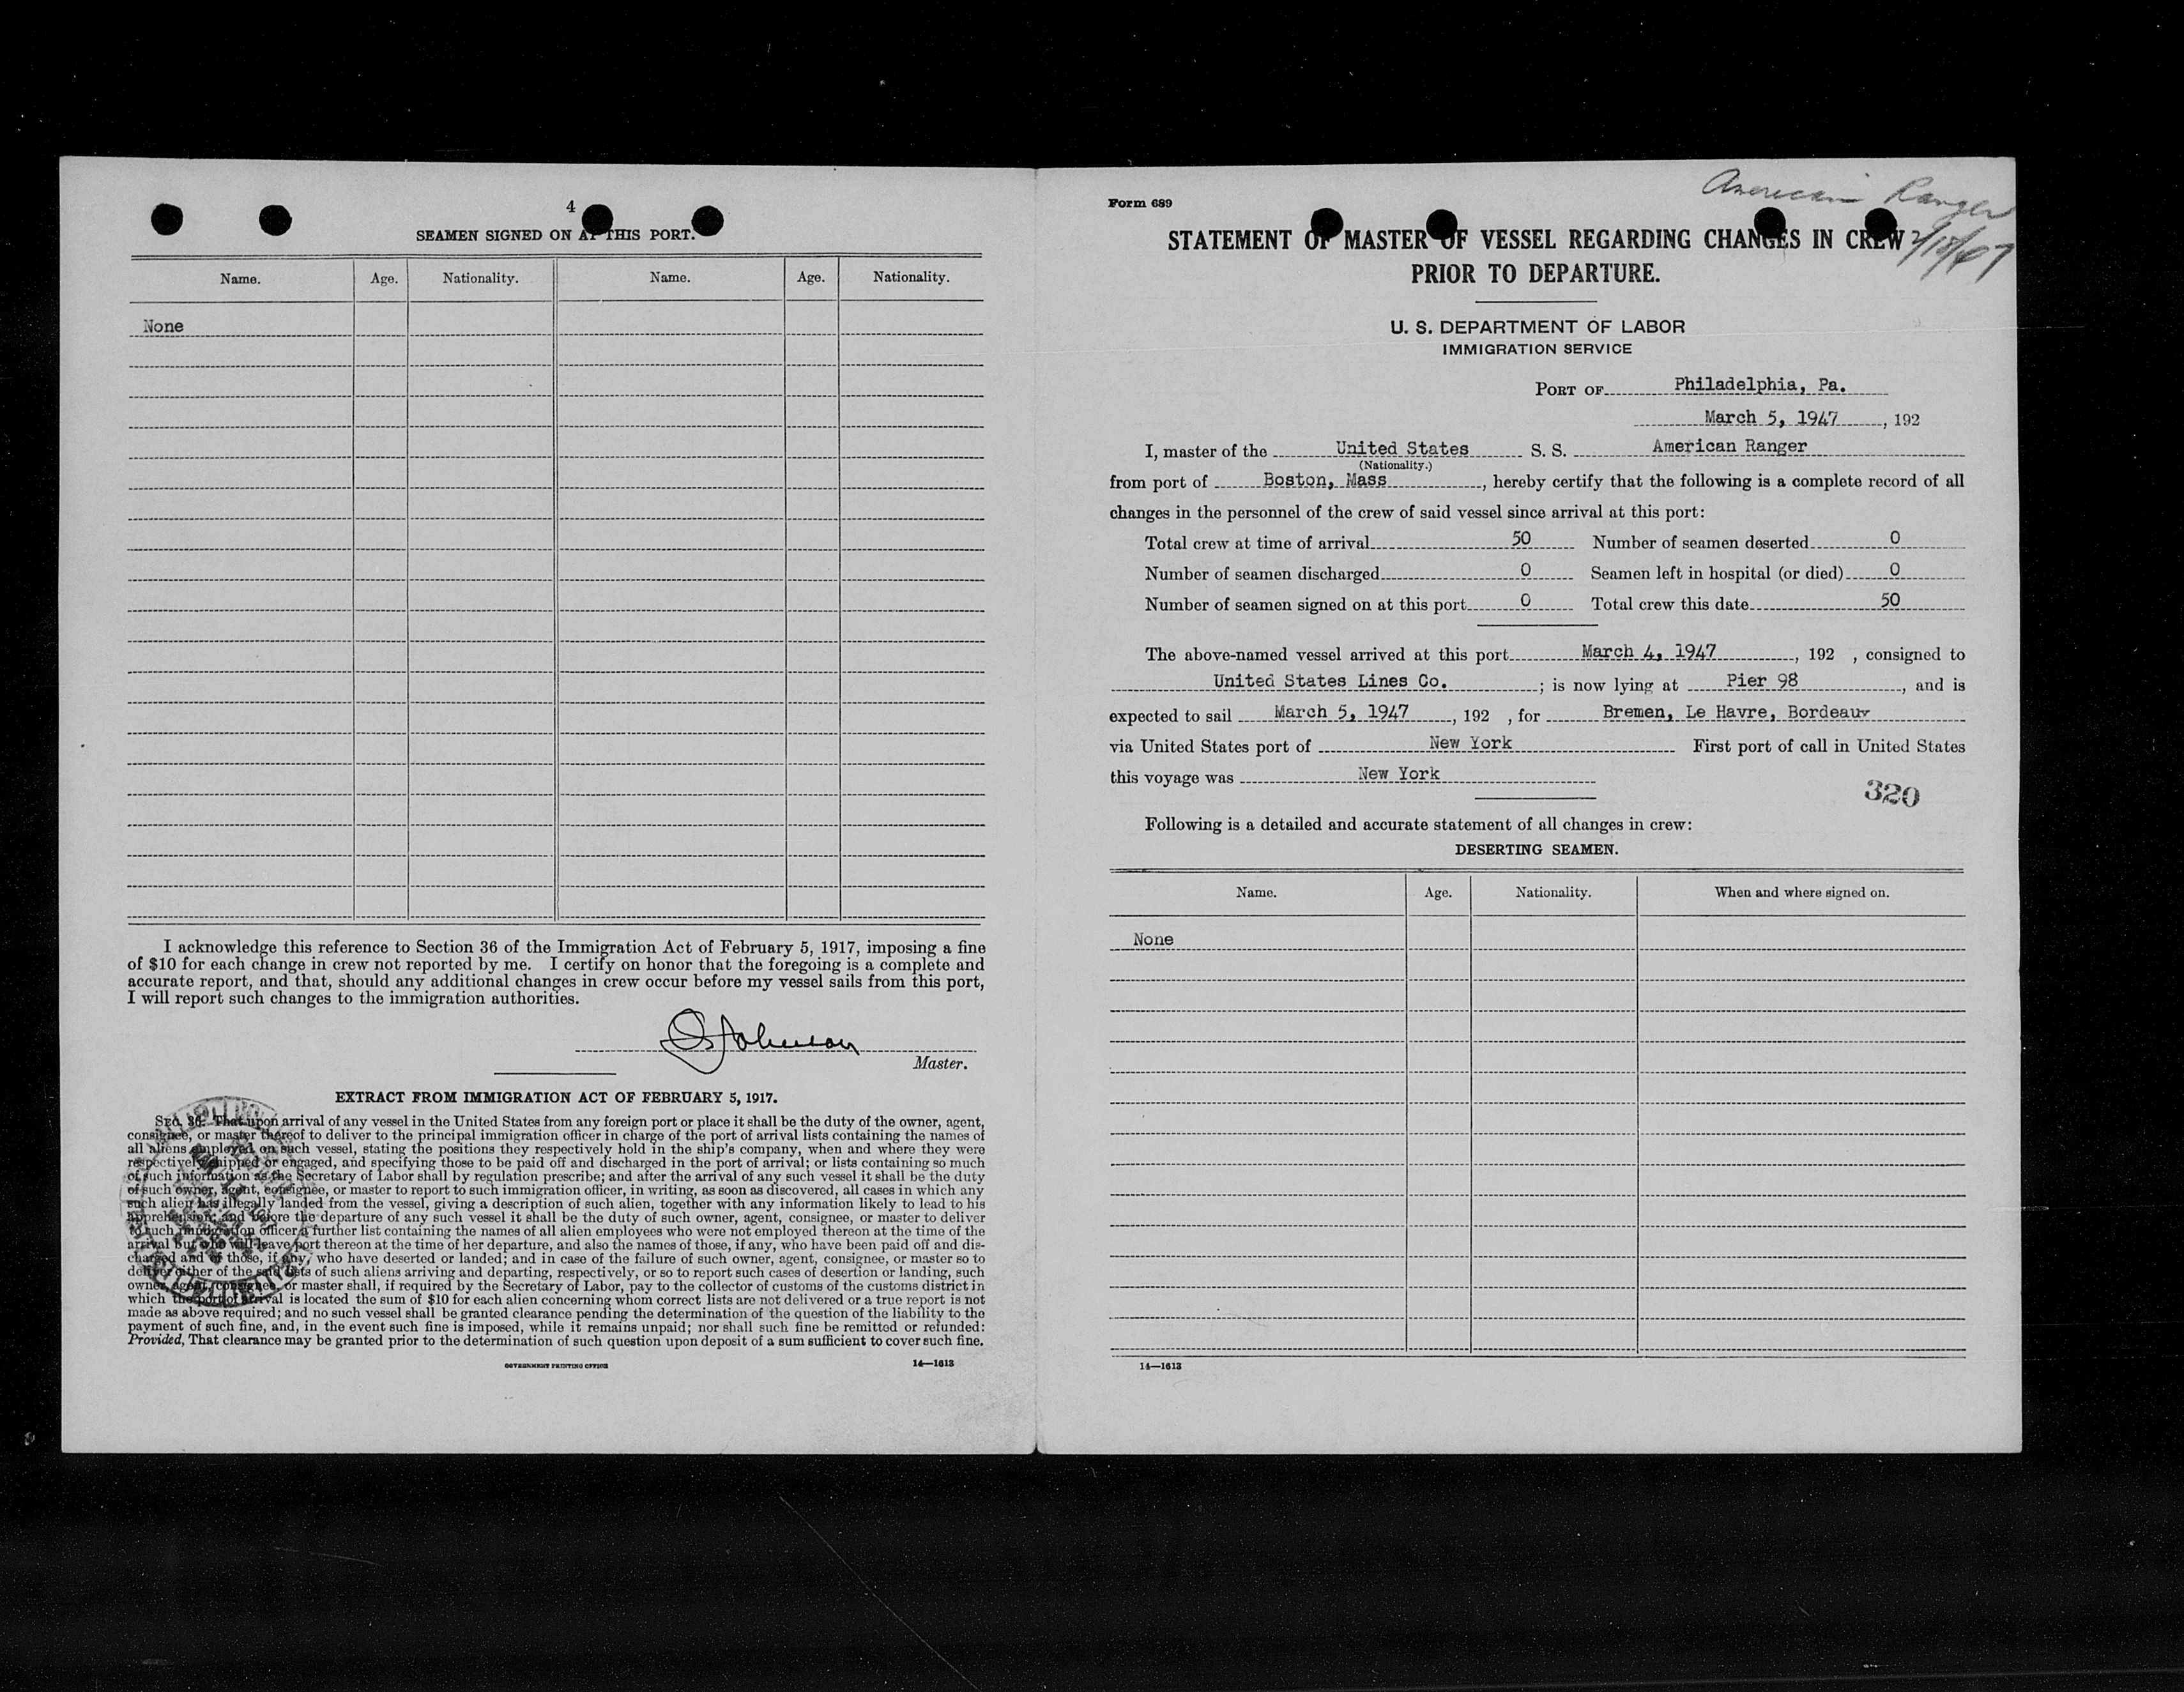 4
SEAMEN SIGNED ON AT THIS PORT.
Name. Age. Nationality. Name. Age. Nationality.
None
I acknowledge this reference to Section 36 of the Immigration Act of February 5, 1917, imposing a fine
of $10 for each change in crew not reported by me. I certify on honor that the foregoing is a complete and
accurate report, and that, should any additional changes in crew occur before my vessel sails from this port,
I will report such changes to the immigration authorities.
Johnson
Master.
EXTRACT FROM IMMIGRATION ACT OF FEBRUARY 5, 1917.
SEC. 36. That upon arrival of any vessel in the United States from any foreign port or place it shall be the duty of the owner, agent,
consignee, or master thereof to deliver to the principal immigration officer in charge of the port of arrival lists containing the names of
all aliens employed on such vessel, stating the positions they respectively hold in the ship's company, when and where they were
respectively shipped or engaged, and specifying those to be paid off and discharged in the port of arrival; or lists containing so much
of such information as the Secretary of Labor shall by regulation prescribe; and after the arrival of any such vessel it shall be the duty
of such owner, agent, consignee, or master to report to such immigration officer, in writing, as soon as discovered, all cases in which any
such alien has illegally landed from the vessel, giving a description of such alien, together with any information likely to lead to his
apprehension; and before the departure of any such vessel it shall be the duty of such owner, agent, consignee, or master to deliver
to such immigration officer a further list containing the names of all alien employees who were not employed thereon at the time of the
arrival but who will leave port thereon at the time of her departure, and also the names of those, if any, who have been paid off and dis-
charged and of those, if any, who have deserted or landed; and in case of the failure of such owner, agent, consignee, or master so to
deliver either of the said lists of such aliens arriving and departing, respectively, or so to report such cases of desertion or landing, such
owner, agent, consignee, or master shall, if required by the Secretary of Labor, pay to the collector of customs of the customs district in
which the port of arrival is located the sum of $10 for each alien concerning whom correct lists are not delivered or a true report is not
made as above required; and no such vessel shall be granted clearance pending the determination of the question of the liability to the
payment of such fine, and, in the event such fine is imposed, while it remains unpaid; nor shall such fine be remitted or refunded:
Provided, That clearance may be granted prior to the determination of such question upon deposit of a sum sufficient to cover such fine.
GOVERNMENT PRINTING OFFICE 14—1613
American Ranger
Form 689
STATEMENT OF MASTER OF VESSEL REGARDING CHANGES IN CREW
PRIOR TO DEPARTURE.
U. S. DEPARTMENT OF LABOR
IMMIGRATION SERVICE
PORT OF Philadelphia, Pa.
March 5, 1947, 192
I, master of the United States S. S. American Ranger
(Nationality.)
from port of Boston, Mass, hereby certify that the following is a complete record of all
changes in the personnel of the crew of said vessel since arrival at this port:
Total crew at time of arrival 50 Number of seamen deserted 0
Number of seamen discharged 0 Seamen left in hospital (or died) 0
Number of seamen signed on at this port 0 Total crew this date 50
The above-named vessel arrived at this port March 4, 1947, 192 , consigned to
United States Lines Co. ; is now lying at Pier 98, and is
expected to sail March 5, 1947, 192 , for Bremen, Le Havre, Bordeaux
via United States port of New York First port of call in United States
this voyage was New York
320
Following is a detailed and accurate statement of all changes in crew:
DESERTING SEAMEN.
Name. Age. Nationality. When and where signed on.
None
14—1613